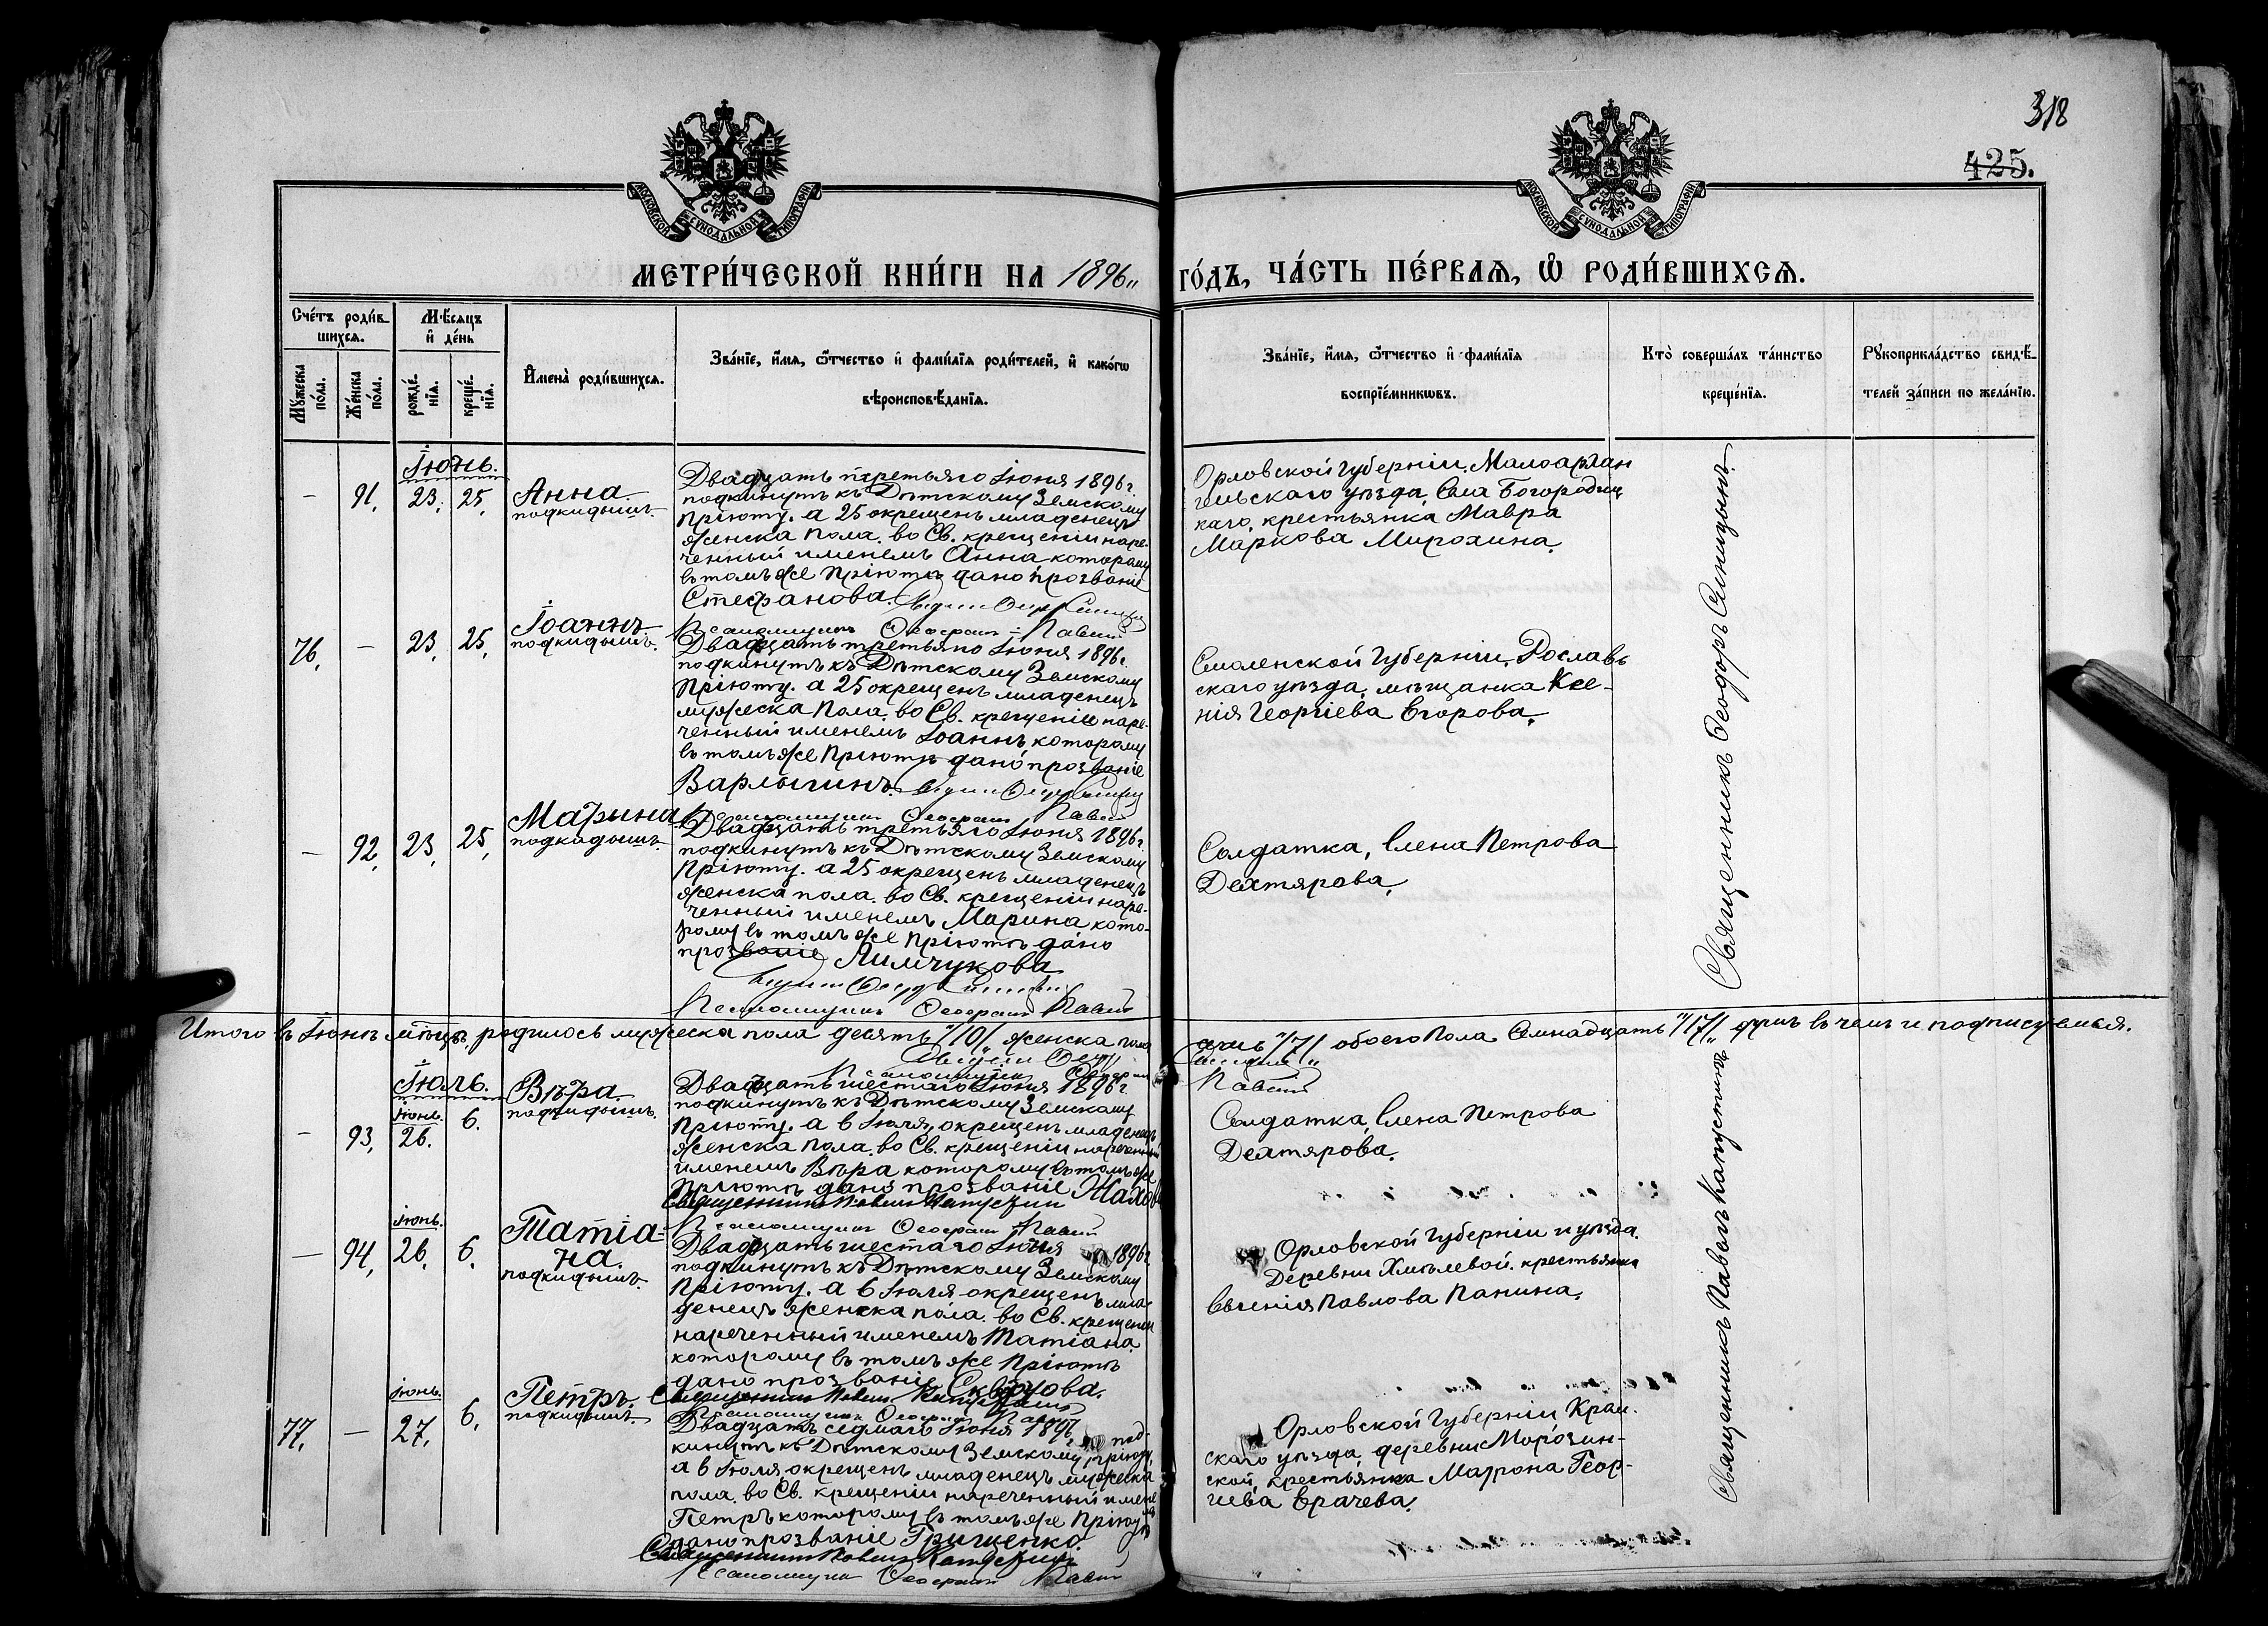 318
425.
МОСКОВСКОЙ СѴНОДАЛЬНОЙ ТИПОГРАФІИ
МОСКОВСКОЙ СѴНОДАЛЬНОЙ ТИПОГРАФІИ
МЕТРИ́ЧЕСКОЙ КНИ́ГИ НА 1896 ГО́ДЪ, ЧА́СТЬ ПЕ́РВАѦ, Ѡ РОДИ́ВШИХСѦ.
Сче́тъ роди́в-
шихсѧ.
Мѣ́сѧцъ
и де́нь
Мꙋ́жеска по́ла.
Же́нска по́ла.
рожде́-
нїѧ.
креще́-
нїѧ.
Имена̀ роди́вшихсѧ.
Зва́нїе, и́мѧ, ѻ́тчество и фами́лїѧ роди́телей, и како́гѡ
вѣроисповѣ́данїѧ.
Зва́нїе, и́мѧ, ѻ́тчество и фами́лїѧ
воспрїе́мникѡвъ.
Кто̀ соверша́лъ та́инство
креще́нїѧ.
Рꙋкоприкла́дство свидѣ́-
телей за́писи по жела́нїю.
Іюнь.
— 91, 23, 25, Анна
подкидышъ.
Двадцать третьяго Іюня 1896 г.
подкинутъ къ Дѣтскому Земскому
Пріюту. а 25 окрещенъ младенецъ
женска пола. во Св. крещеніи наре-
ченный именемъ Анна, которому
въ томъ же Пріютѣ дано прозваніе
Стефанова.
Псаломщикъ
Орловской Губерніи, Малоархан
гельскаго уѣзда, Села Богородиц
каго, крестьянка Мавра
Маркова Мирохина,
76, — 23, 25, Іоаннъ
подкидышъ.
Двадцать третьяго Іюня 1896 г.
подкинутъ къ Дѣтскому Земскому
Пріюту. а 25 окрещенъ младенецъ
мужеска пола. во Св. крещеніи наре-
ченный именемъ Іоаннъ, которому
въ томъ же Пріютѣ дано прозваніе
Варлыгинъ.
Псаломщикъ
Смоленской Губерніи, Рославь
скаго уѣзда, мѣщанка Ксе-
нія Георгіева Егорова,
— 92, 23, 25, Марина
подкидышъ.
Двадцать третьяго Іюня 1896 г.
подкинутъ къ Дѣтскому Земскому
Пріюту. а 25 окрещенъ младенецъ
женска пола. во Св. крещеніи наре-
ченный именемъ Марина кото-
рому въ томъ же Пріютѣ дано
прозваніе Лимчукова
Псаломщикъ
Солдатка, Елена Петрова
Дехтярова,
Священникъ Ѳеодоръ Синицынъ.
Итого въ Іюнѣ мѣсяцѣ, родилось мужеска пола десять "/10/" женска пола семь "/7/" обоего Пола Семнадцать "/17/" въ чемъ и подписуемся.
Псаломщикъ
Іюль.
Іюнь.
— 93, 26. 6. Вѣра
подкидышъ.
Двадцать шестаго Іюня 1896 г.
подкинутъ къ Дѣтскому Земскому
Пріюту. а 6 Іюля, окрещенъ младенецъ
женска пола. во Св. крещеніи нареченный
именемъ Вѣра которому въ томъ же
Пріютѣ дано прозваніе
Священникъ Павелъ Капустинъ
Псаломщикъ
Солдатка, Елена Петрова
Дехтярова.
Іюнь.
— 94, 26, 6. Татіа-
на.
подкидышъ.
Двадцать шестаго Іюня 1896 г.
подкинутъ къ Дѣтскому Земскому
Пріюту. а 6 Іюля окрещенъ мла-
денецъ женска пола. во Св. крещеніи
нареченный именемъ Татіана
которому въ томъ же Пріютѣ
дано прозваніе Скворцова.
Священникъ Павелъ Капустинъ
Псаломщикъ
Орловской Губерніи и уѣзда.
Деревни Хмѣлевой. крестьянка
Евгенія Павлова Панина,
Іюнь.
77, — 27, 6, Петръ.
подкидышъ.
Двадцать седмаго Іюня 1896, под-
кинутъ къ Дѣтскому Земскому пріюту,
а 6 Іюля, окрещенъ младенецъ мужеска
пола. во Св. крещеніи нареченный имене
Петръ которому въ томъ же Пріютѣ
дано прозваніе Грищенко.
Священникъ Павелъ Капустинъ
Псаломщикъ
Орловской Губерніи, Кром.
скаго уѣзда, деревни Морозин-
ской, крестьянка Матрона Геор-
гіева Грачева,
Священникъ Павелъ Капустинъ